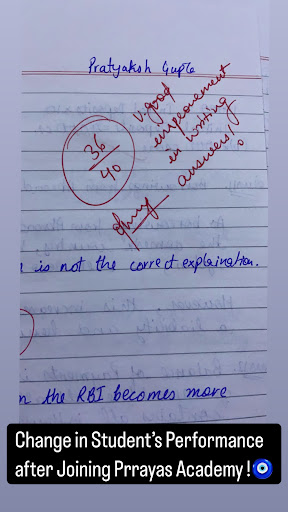 Pratyaksh Gupta
36
40
v. good
improvement
in writing
answers!!
is not the correct explaination.
n the RBI becomes more
Change in Student's Performance
after Joining Prrayas Academy !🧿